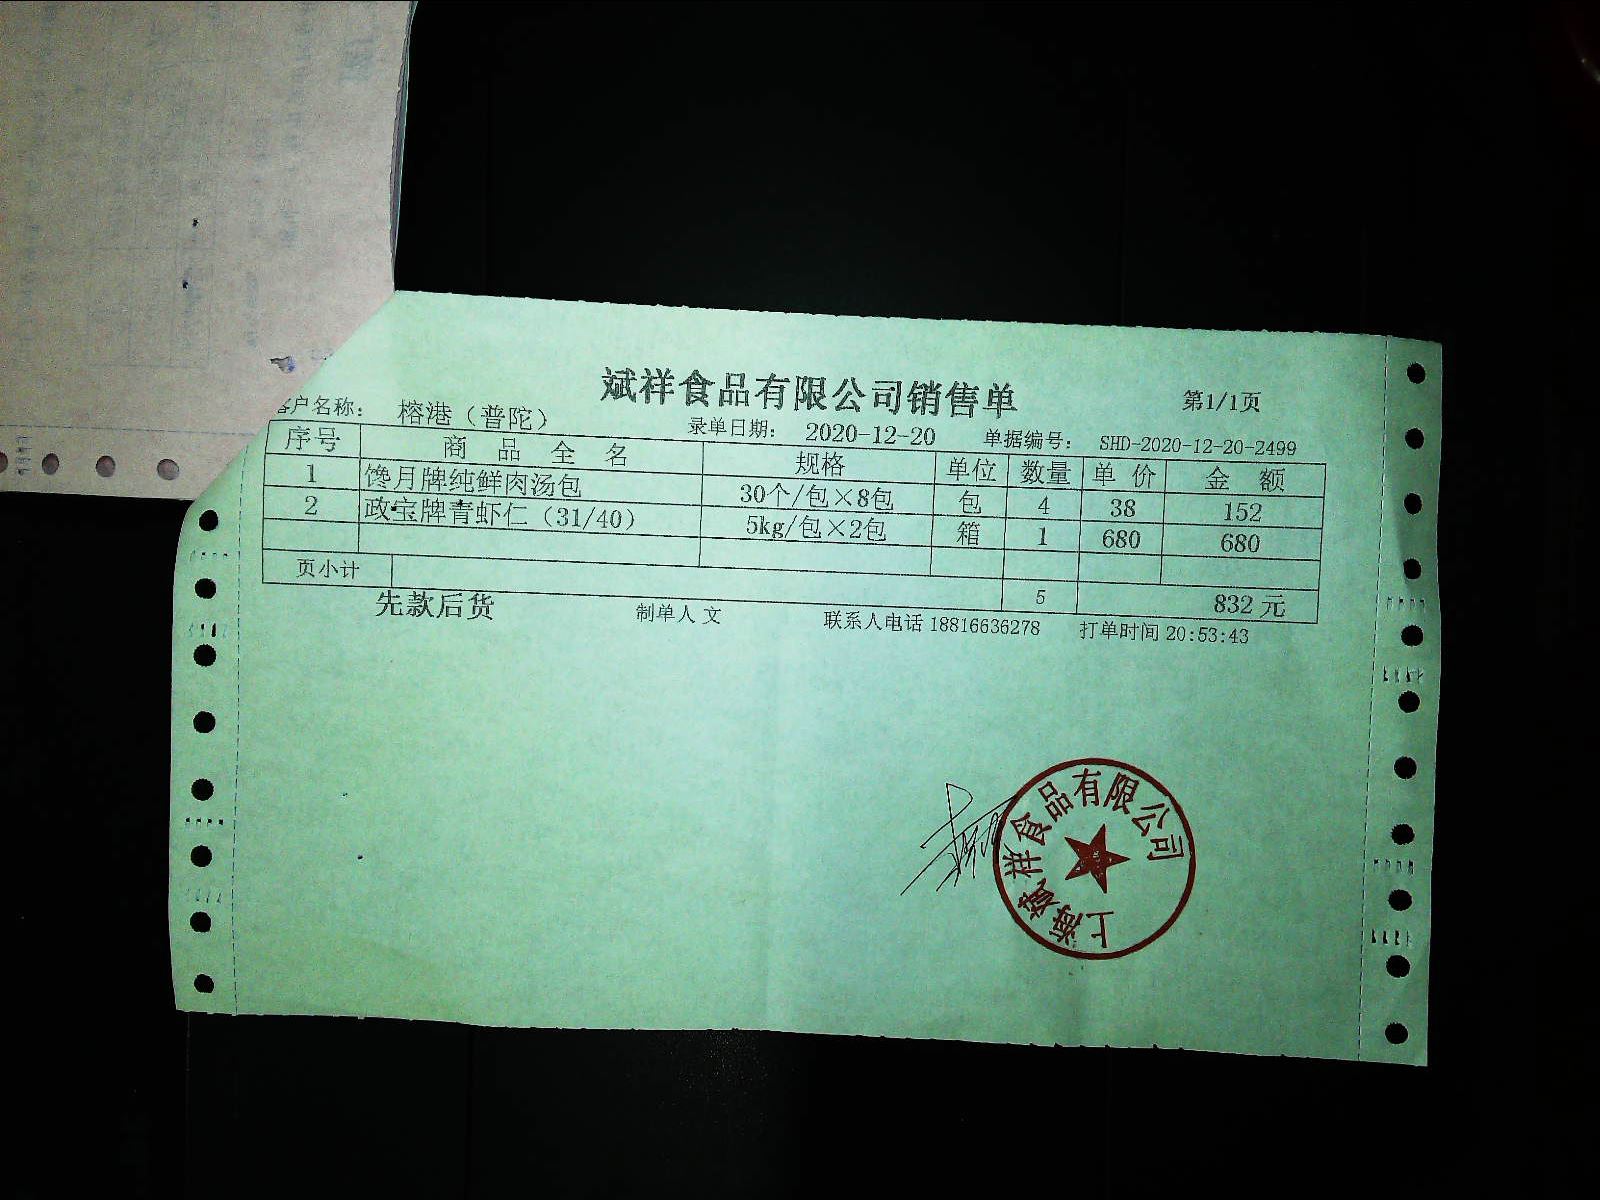 斌祥食品有限公司销售单
第1/1页
客户名称: 榕港（普陀） 录单日期: 2020-12-20 单据编号: SHD-2020-12-20-2499
序号 商品全名 规格 单位 数量 单价 金额
1 馋月牌纯鲜肉汤包 30个/包×8包 包 4 38 152
2 政宝牌青虾仁（31/40） 5kg/包×2包 箱 1 680 680
页小计 5 832 元
先款后货 制单人 文 联系人电话 18816636278 打单时间 20:53:43
上海斌祥食品有限公司